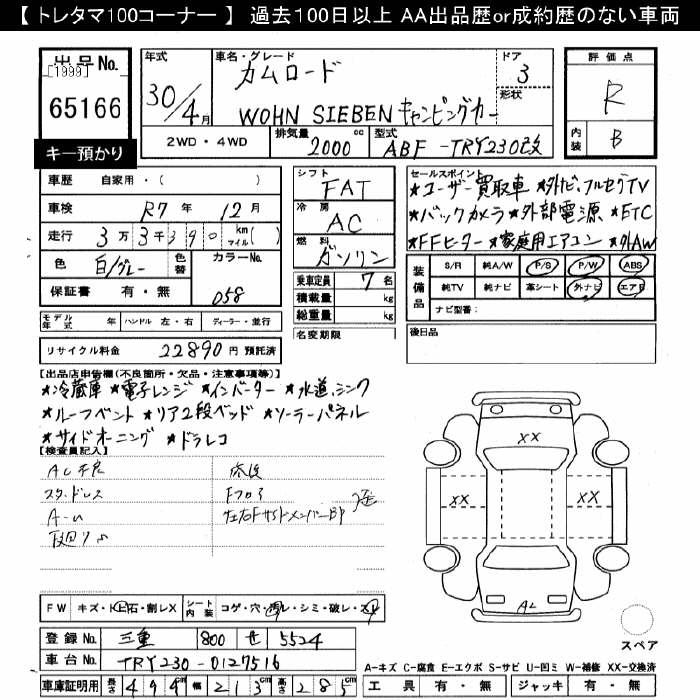 【 トレタマ100コーナー 】 過去100日以上 AA出品歴or成約歴のない車両
出品No.
[1999]
65166
キー預かり
年式
30/4月
車名・グレード
カムロード
WOHN SIEBEN キャンピングカー
ドア
3
形状
評価点
R
内装
B
2WD・4WD
排気量
2000
cc
型式
ABF-TRY230改
車歴 自家用・( )
車検 R7年 12月
走行 3万3千390 km マイル( )
色 白/グレー
色替
カラーNo.
058
保証書 有・無
シフト
FAT
冷房
AC
燃料
ガソリン
乗車定員 7名
積載量 kg
総重量 kg
名変期限
セールスポイント
★ユーザー買取車 ★外ナビ、フルセグTV
★バックカメラ ★外部電源 ★ETC
★FFヒーター ★家庭用エアコン ★外AW
装備品
S/R 純A/W P/S P/W ABS
純TV 純ナビ 革シート 外ナビ エアB
ナビ型番:
後日品
モデル年式 年 ハンドル 左・右 ディーラー・並行
リサイクル料金 22890円 預託済
【出品店申告欄(不良箇所・欠品・注意事項等)】
★冷蔵庫 ★電子レンジ ★インバーター ★水道、シンク
★ルーフベント ★リア2段ベッド ★ソーラーパネル
★サイドオーニング ★ドラレコ
【検査員記入】
AC不良
スタッドレス
A-U
修復
Fフロア
左右Fサイドメンバー
XX
XX
XX
AL
スペア
FW キズ・ト・石・割レX
シート内装 コゲ・穴・汚レ・シミ・破レ・スレ
登録No. 三重 800 せ 5524
車台No. TRY230-0127516
車庫証明用 長さ 494cm 幅 213cm 高さ 285cm
A-キズ C-腐食 E-エクボ S-サビ U-凹ミ W-補修 XX-交換済
工具 有・無 ジャッキ 有・無